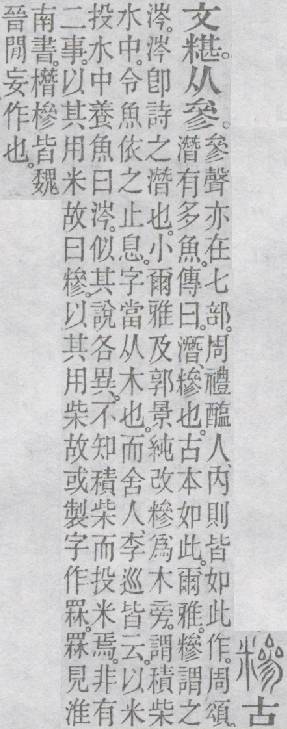 糝古
文糂。从參。
參聲亦在七部。周禮醢人、內則皆如此作。周頌。
潛有多魚。傳曰。潛、糝也。古本如此。爾雅。糝謂之
涔。涔卽詩之潛也。小爾雅及郭景純改糝爲木旁。謂積柴
水中。令魚依之止息。字當从木也。而舍人、李巡皆云。以米
投水中養魚曰涔。似其說各異。不知積柴而投米焉。非有
二事。以其用米故曰糝。以其用柴故或製字作罧。罧見淮
南書。橬槮皆魏
晉閒妄作也。